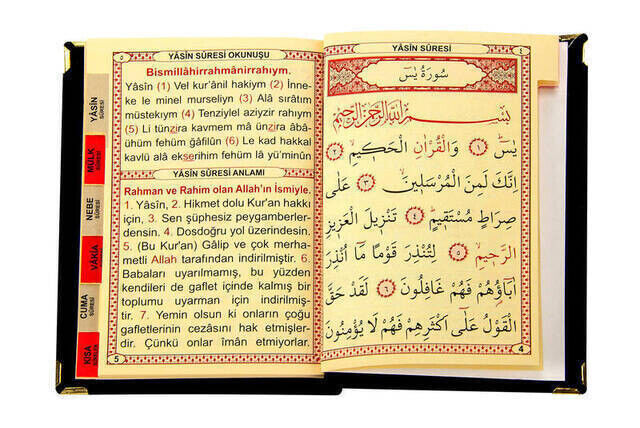 ٥
YÂSÎN SÛRESİ OKUNUŞU
Bismillâhirrahmânirrahıym.
Yâsîn (1) Vel kur'ânil hakiym (2) İnne-
ke le minel murseliyn (3) Alâ sırâtım
müstekıym (4) Tenziylel aziyzir rahıym
(5) Li tünzira kavmem mâ ünzira âbâ-
ühüm fehüm ğâfilûn (6) Le kad hakkal
kavlü alâ ekserihim fehüm lâ yü'minûn
YÂSÎN SÛRESİ ANLAMI
Rahman ve Rahim olan Allah'ın İsmiyle.
1. Yâsîn, 2. Hikmet dolu Kur'an hakkı
için, 3. Sen şüphesiz peygamberler-
densin. 4. Dosdoğru yol üzerindesin.
5. (Bu Kur'an) Gâlip ve çok merha-
metli Allah tarafından indirilmiştir. 6.
Babaları uyarılmamış, bu yüzden
kendileri de gaflet içinde kalmış bir
toplumu uyarman için indirilmiş-
tir. 7. Yemin olsun ki onların çoğu
gafletlerinin cezâsını hak etmişler-
dir. Çünkü onlar îman etmiyorlar.
5
YÂSÎN
SÛRESİ
MÜLK
SÛRESİ
NEBE
SÛRESİ
VÂKIA
SÛRESİ
CUMA
SÛRESİ
KISA
SÛRELER
YÂSÎN SÛRESİ
٤
سُورَةُ يٰسٓ
بِسْمِ اللّٰهِ الرَّحْمٰنِ الرَّحِيمِ
يٰسٓ ﴿١﴾ وَالْقُرْاٰنِ الْحَكِيمِ ﴿٢﴾
اِنَّكَ لَمِنَ الْمُرْسَلِينَ ﴿٣﴾ عَلٰى
صِرَاطٍ مُسْتَقِيمٍ ﴿٤﴾ تَنْزِيلَ الْعَزِيزِ
الرَّحِيمِ ﴿٥﴾ لِتُنْذِرَ قَوْمًا مَٓا اُنْذِرَ
اٰبَٓاؤُهُمْ فَهُمْ غَافِلُونَ ﴿٦﴾ لَقَدْ حَقَّ
الْقَوْلُ عَلٰٓى اَكْثَرِهِمْ فَهُمْ لَا يُؤْمِنُونَ
4